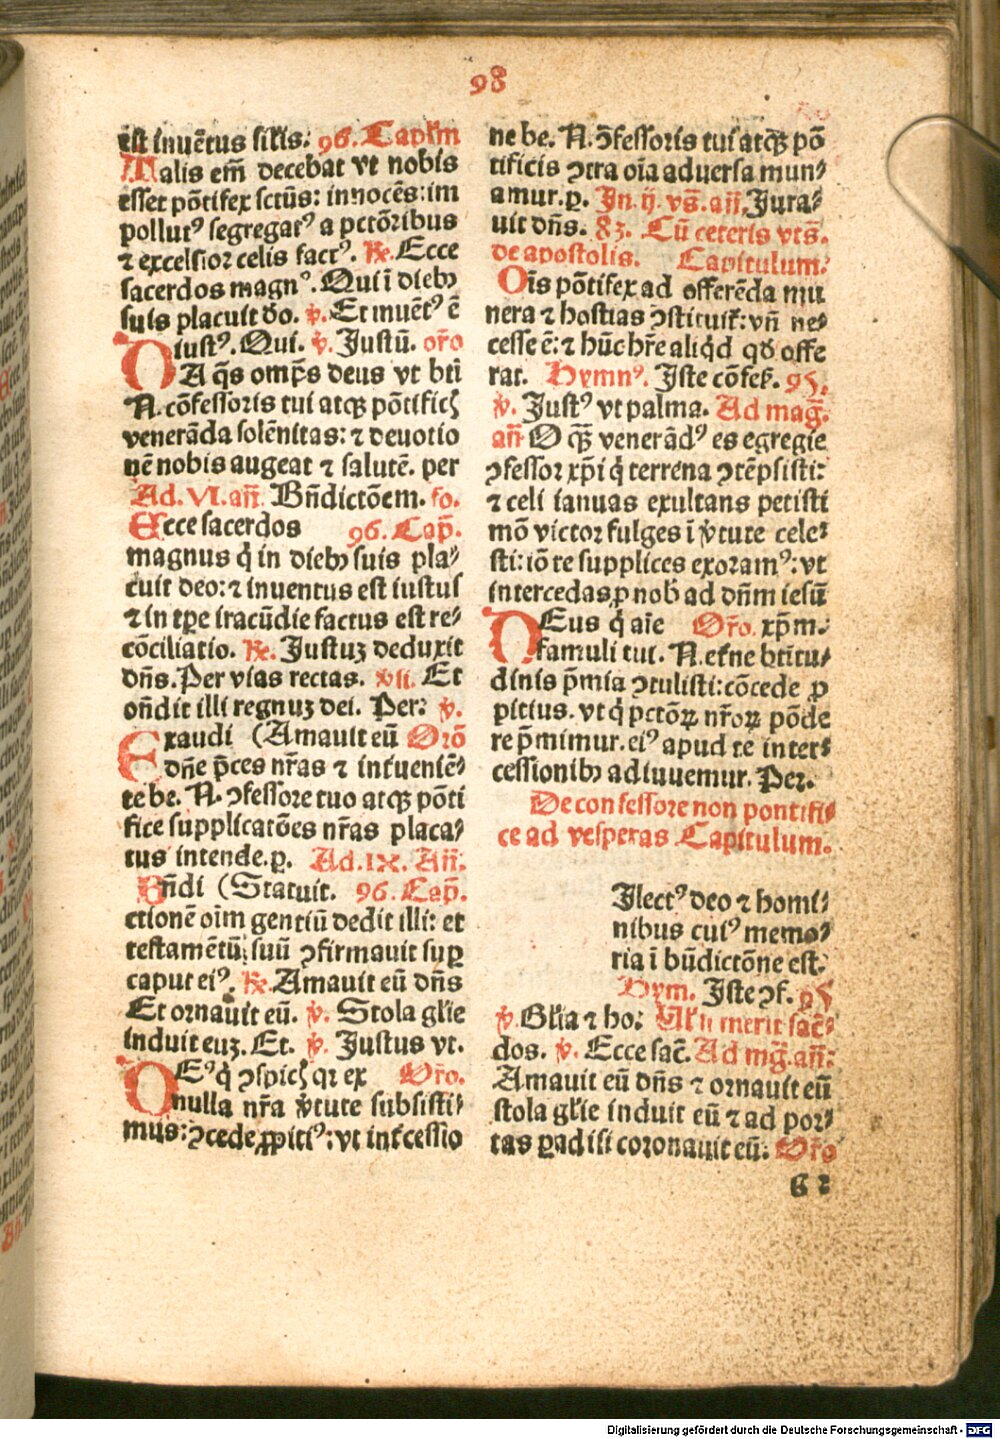 98
est inuētus silis: 96. Capłm
Talis em̄ decebat vt nobis
esset pōtifex sctūs: innocēs: im
pollutꝰ segregatꝰ a pctōribus
⁊ excelsior celis factꝰ. ꝶ. Ecce
sacerdos magnꝰ. Qui ī diebꝫ
suis placuit do. ꝟ. Et inuētꝰ ē
iustꝰ. Qui. ꝟ. Justū. or̄o
DA q̄s omp̄s deus vt bti
N. cōfessoris tui atqꝫ pōtificꝭ
venerāda solēnitas: ⁊ deuotio
nē nobis augeat ⁊ salutē. per
Ad. VI. an̄. Bn̄dictōem. fo.
Ecce sacerdos 96. Cap̄.
magnus q̄ in diebꝫ suis pla⸗
cuit deo: ⁊ inuentus est iustus
⁊ in tꝑe iracūdie factus est re⸗
cōciliatio. ꝶ. Justuꝫ deduxit
dn̄s. Per vias rectas. ꝟli. Et
on̄dit illi regnuꝫ dei. Per: ꝟ.
Exaudi (Amauit eū Orō
dn̄e p̄ces nr̄as ⁊ inṫueniē⸗
te be. N. ꝯfessore tuo atqꝫ pōti
fice supplicatōes nr̄as placa⸗
tus intende. p. Ad. IX. An̄.
Bn̄di (Statuit. 96. Cap̄.
ctionē oim gentiū dedit illi: et
testamētū suū ꝯfirmauit suꝑ
caput eiꝰ. ꝶ. Amauit eū dn̄s
Et ornauit eū. ꝟ. Stola głie
induit euꝫ. Et. ꝟ. Justus vt.
DEꝰ q̄ ꝯspicꝭ qꝛ ex Or̄o.
nulla nr̄a ꝟtute subsisti⸗
mus: ꝯcede ꝓpitiꝰ: vt inṫcessio
ne be. N. ꝯfessoris tui atqꝫ pō
tificis ꝯtra oīa aduersa mun⸗
amur. p. In. ij. vs̄. an̄. Jura⸗
uit dn̄s. 83. Cū ceteris vts̄.
de apostolis. Capitulum.
Oīs pōtifex ad offerēda mu
nera ⁊ hostias ꝯstituit̄: vn̄ ne⸗
cesse ē: ⁊ hūc hr̄e aliq̄d qd̄ offe
rat. Hymnꝰ. Iste cōfes̄. 95.
ꝟ. Justꝰ vt palma. Ad maḡ.
an̄ O qꝫ̄ venerādꝰ es egregie
ꝯfessor xp̄i q̄ terrena ꝯtēpsisti:
⁊ celi ianuas exultans petisti
mō victor fulges ī ꝟtute cele⸗
sti: iō te supplices exoramꝰ: vt
intercedas ꝓ nob̄ ad dn̄m iesū
DEus q̄ aīe Or̄o. xp̄m:
famuli tui. N. et̄ne bt̄itu⸗
dinis p̄mia ꝯtulisti: cōcede ꝓ
pitius. vt q̄ pctōꝝ nr̄oꝝ pōde
re p̄mimur. eiꝰ apud te inter⸗
cessionibꝫ adiuuemur. Per.
De confessore non pontifi⸗
ce ad vesperas Capitulum.
Ilectꝰ deo ⁊ homi⸗
nibus cuiꝰ memo⸗
ria ī bn̄dictōne est.
Hym. Iste ꝯf. 95
ꝟ. Głia ⁊ ho: sac̄⸗
dos. ꝟ. Ecce sac̄. Ad mḡ. an̄:
Amauit eū dn̄s ⁊ ornauit eū
stola głie induit eū ⁊ ad por⸗
tas ꝑadisi coronauit eū: Or̄o
Digitalisierung gefördert durch die Deutsche Forschungsgemeinschaft - DFG